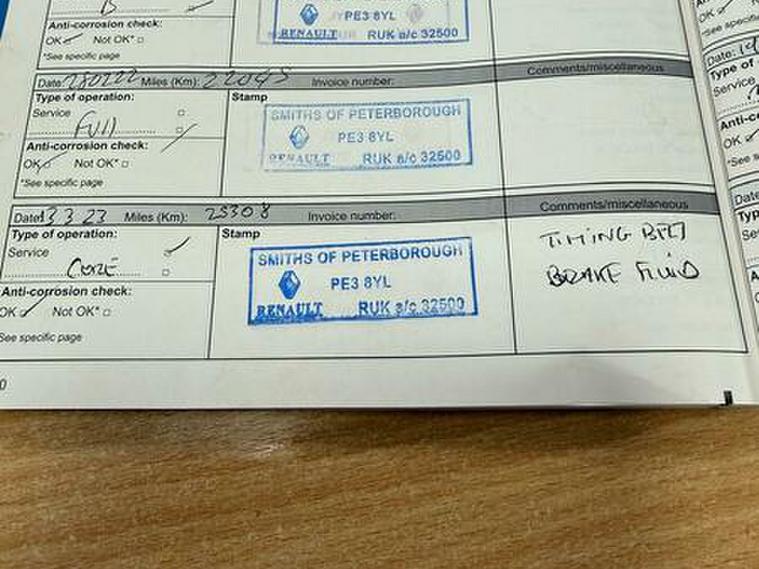 B
PE3 8YL
Anti-corrosion check:
OK Not OK*
RENAULT RUK a/c 32500
*See specific page
Date: 280222 Miles (Km): 22045 Invoice number: Comments/miscellaneous
Type of operation: Stamp
Service
Full
SMITHS OF PETERBOROUGH
PE3 8YL
RENAULT RUK a/c 32500
Anti-corrosion check:
OK Not OK*
*See specific page
Date: 13 3 23 Miles (Km): 25308 Invoice number: Comments/miscellaneous
Type of operation: Stamp
Service
CORE
SMITHS OF PETERBOROUGH
PE3 8YL
RENAULT RUK a/c 32500
TIMING BELT
BRAKE FLUID
Anti-corrosion check:
OK Not OK*
See specific page
0